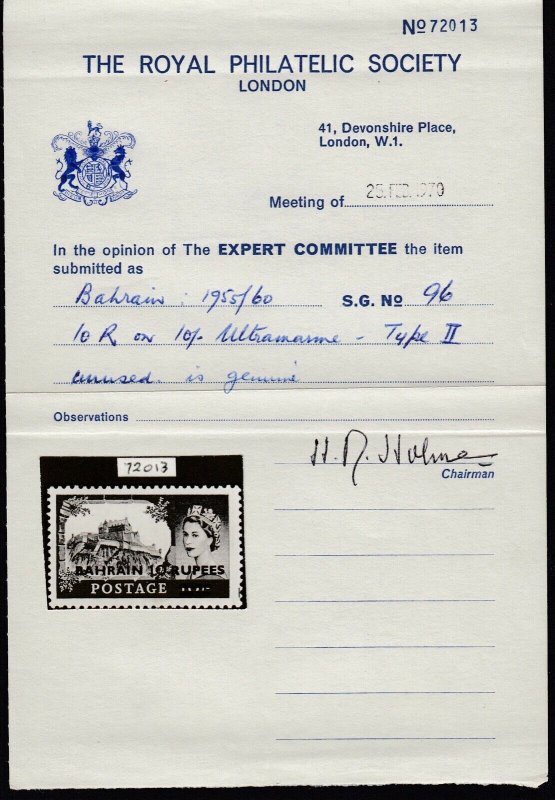 No 72013
THE ROYAL PHILATELIC SOCIETY
LONDON
41, Devonshire Place,
London, W.1.
Meeting of 25 FEB 1970
In the opinion of The EXPERT COMMITTEE the item
submitted as
Bahrain : 1955/60 S.G. No 96
10 R on 10/- Ultramarine - Type II
unused. is genuine
Observations
H. R. Holmes
Chairman
72013
BAHRAIN 10 RUPEES
POSTAGE